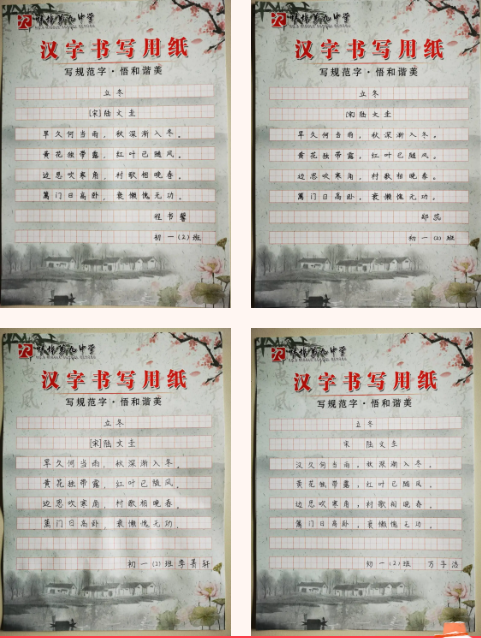 中学
汉字书写用纸
写规范字·悟和谐美
立冬
[宋]陆文圭
早久何当雨，秋深渐入冬。
黄花独带露，红叶已随风。
边思吹寒角，村歌相晚春。
篱门日高卧，衰懒愧无功。
程书馨
初一(2)班
中学
汉字书写用纸
写规范字·悟和谐美
立冬
[宋]陆文圭
早久何当雨，秋深渐入冬。
黄花独带露，红叶已随风。
边思吹寒角，村歌相晚春。
篱门日高卧，衰懒愧无功。
初一(2)班
中学
汉字书写用纸
写规范字·悟和谐美
立冬
[宋]陆文圭
早久何当雨，秋深渐入冬。
黄花独带露，红叶已随风。
边思吹寒角，村歌相晚春。
篱门日高卧，衰懒愧无功。
初一(2)班李菁轩
中学
汉字书写用纸
写规范字·悟和谐美
立冬
宋 陆文圭
汉久何当雨，秋深渐入冬。
黄花独带露，红叶已随风。
边思吹寒角，村歌闻晚春。
篱门日高卧，衰懒愧无功。
初一(2)班 万子浩